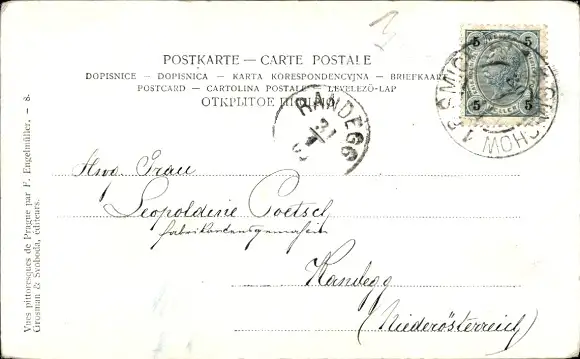 POSTKARTE — CARTE POSTALE
DOPISNICE — DOPISNICA — KARTA KORESPONDENCYJNA — BRIEFKAART
POSTCARD — CARTOLINA POSTALE — LEVELEZŐ-LAP
ОТКРЫТОЕ
5 5
5 5
SMICHOW 1
RANDEGG
21
Hwg. Frau
Leopoldine Poetsch
fabrikantensgemahlin
Randegg
(Niederösterreich)
Vues pittoresques de Prague par F. Engelmüller. — 8.
Grosman & Svoboda, éditeurs.